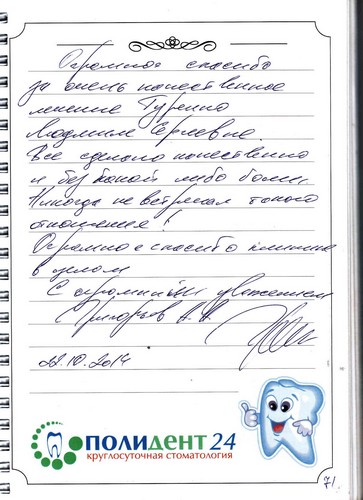 Огромное спасибо
за очень качественное
лечение Гуренко
Людмиле Сергеевне.
Все сделано качественно
и без какой либо боли.
Никогда не встречал такого
отношения!
Огромное спасибо клинике
в целом
С огромным уважением
Григорьев А.
22.10.2014
ПОЛИДЕНТ 24
круглосуточная стоматология
71